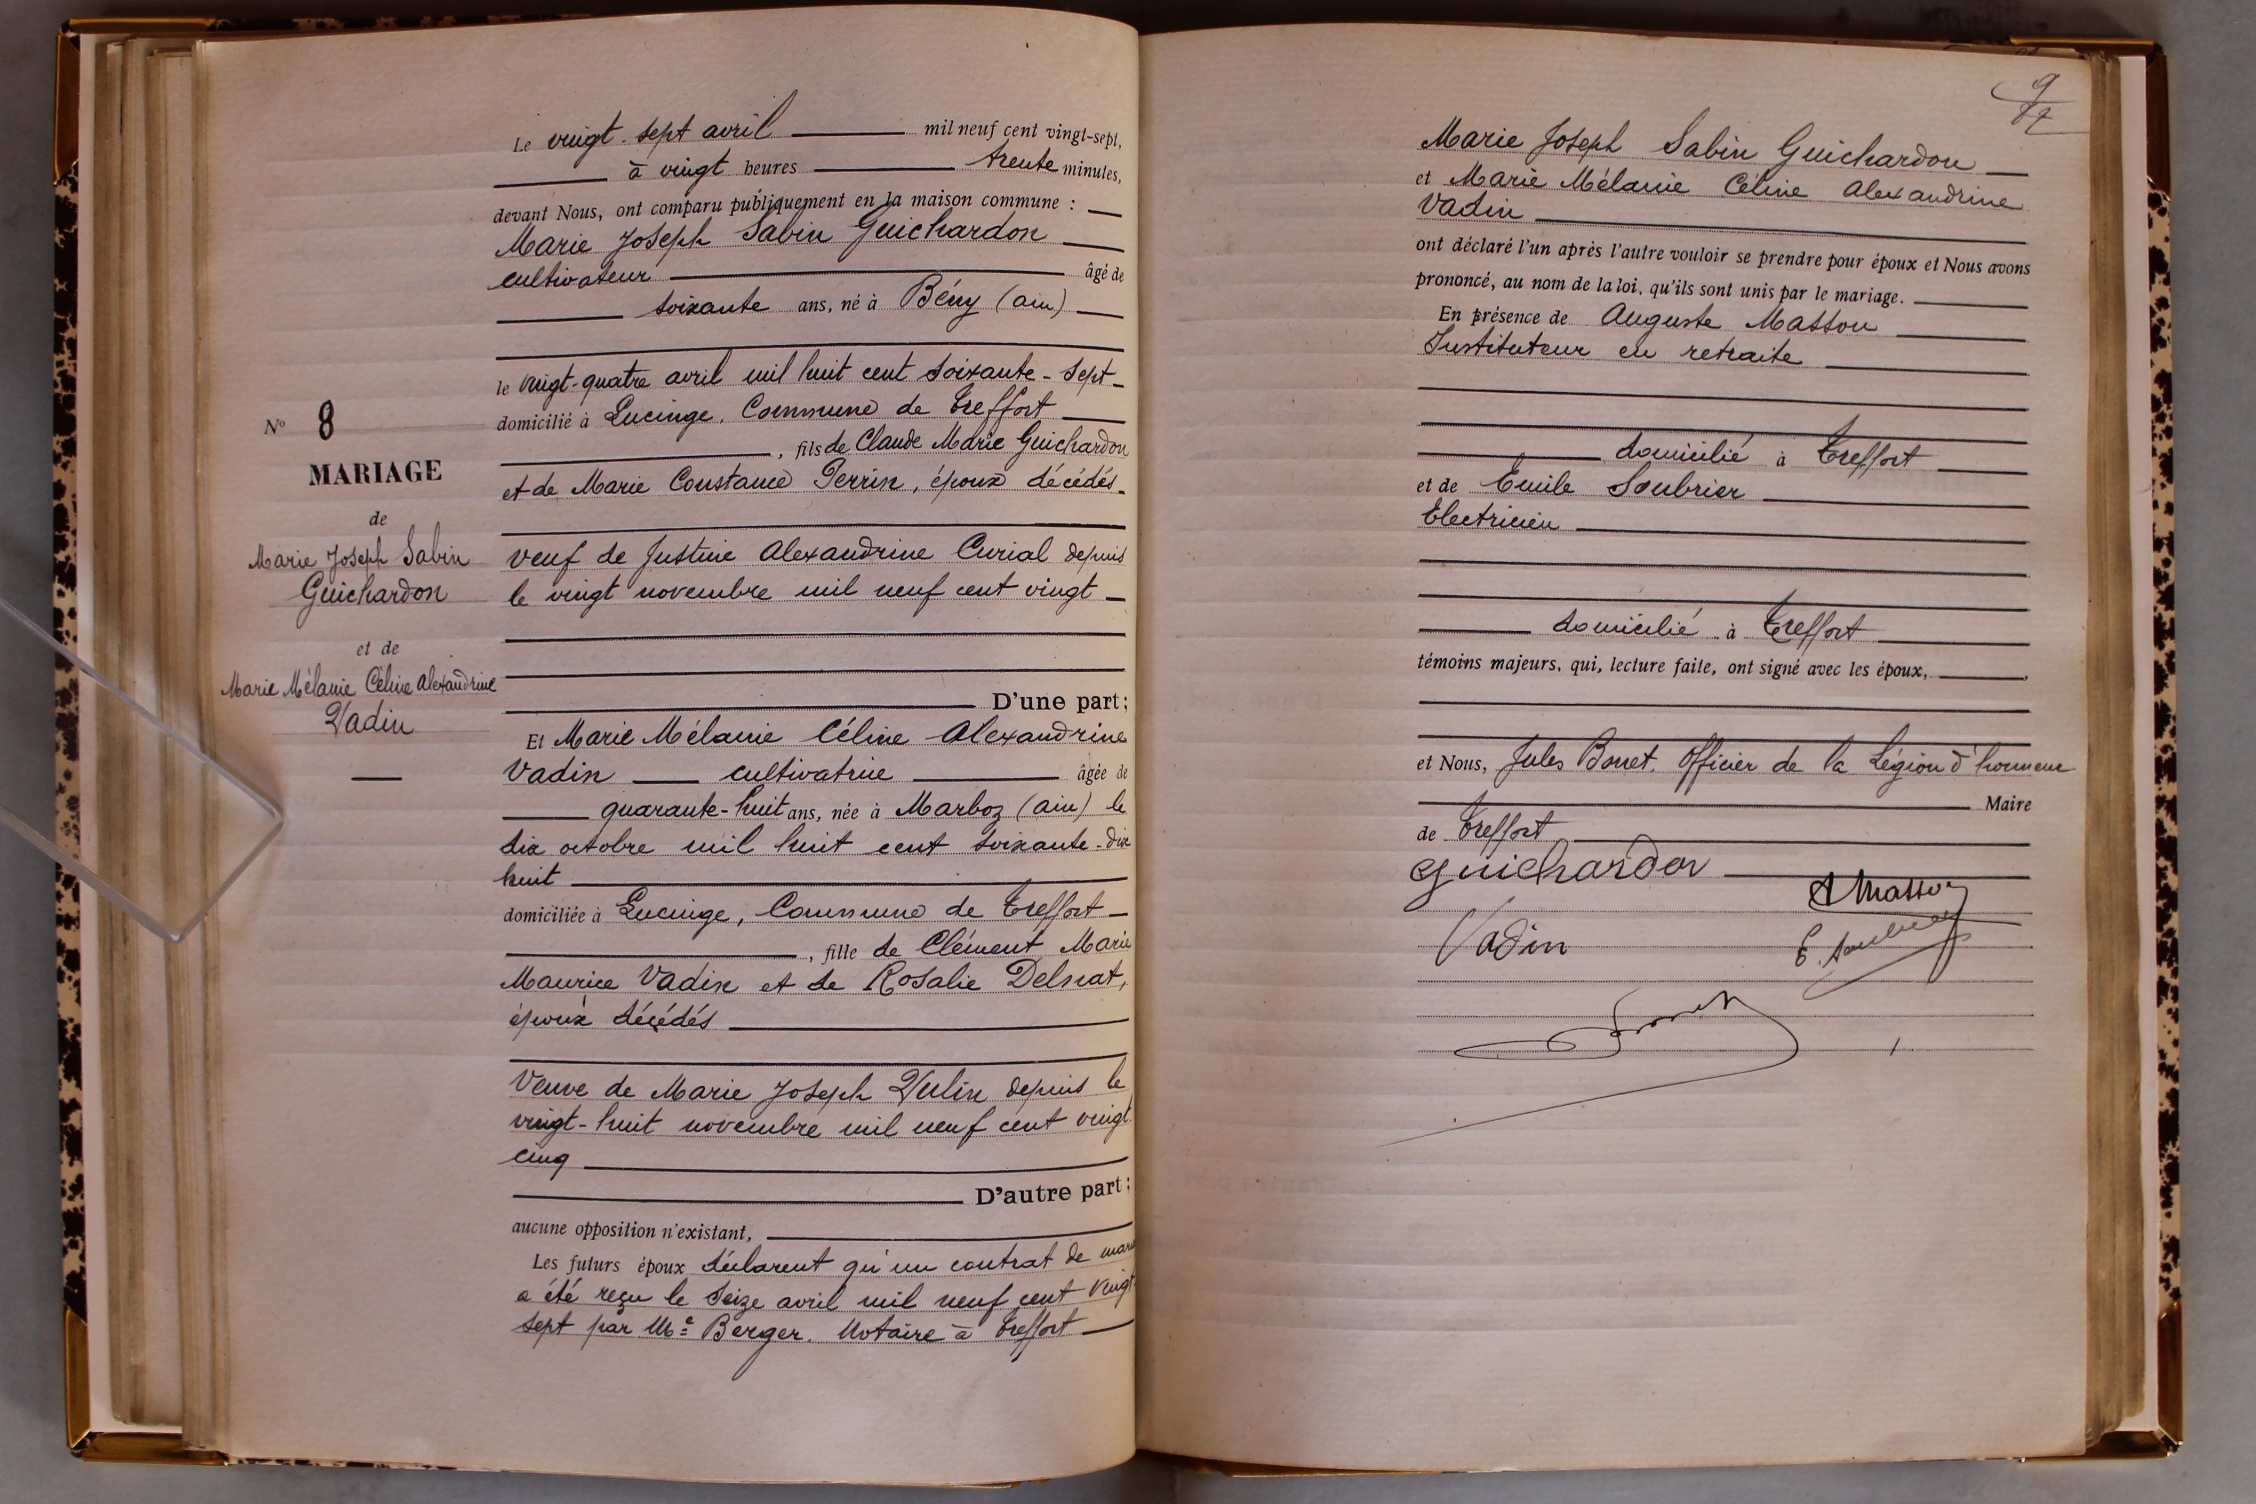 Le vingt-sept avril mil neuf cent vingt-sept,
à vingt heures trente minutes,
devant Nous, ont comparu publiquement en la maison commune :
Marie Joseph Sabin Guichardon
cultivateur âgé de
soixante ans, né à Bény (ain)
le vingt-quatre avril mil huit cent soixante-sept
domicilié à Lucinge, Commune de Treffort
, fils de Claude Marie Guichardon
et de Marie Constance Perrin, époux décédés
veuf de Justine Alexandrine Curial depuis
le vingt novembre mil neuf cent vingt
D'une part;
Nº 8
MARIAGE
de
Marie Joseph Sabin
Guichardon
et de
Marie Mélanie Céline Alexandrine
Vadin
Et Marie Mélanie Céline Alexandrine
Vadin cultivatrice âgée de
quarante-huit ans, née à Marboz (ain) le
dix octobre mil huit cent soixante-dix
huit
domiciliée à Lucinge, Commune de Treffort
, fille de Clément Marie
Maurice Vadin et de Rosalie Delnat,
époux décédés
Veuve de Marie Joseph Vulin depuis le
vingt-huit novembre mil neuf cent vingt
cinq
D'autre part;
aucune opposition n'existant,
Les futurs époux déclarent qu'un contrat de
a été reçu le seize avril mil neuf cent vingt
sept par Me Berger, Notaire à Treffort
9
Marie Joseph Sabin Guichardon
et Marie Mélanie Céline Alexandrine
Vadin
ont déclaré l'un après l'autre vouloir se prendre pour époux et Nous avons
prononcé, au nom de la loi, qu'ils sont unis par le mariage.
En présence de Auguste Masson
Instituteur en retraite
domicilié à Treffort
et de Emile Soubrier
Electricien
domicilié à Treffort
témoins majeurs, qui, lecture faite, ont signé avec les époux,
et Nous, Jules Bonet, Officier de la Légion d'honneur
Maire
de Treffort
Guichardon
A Masson
Vadin